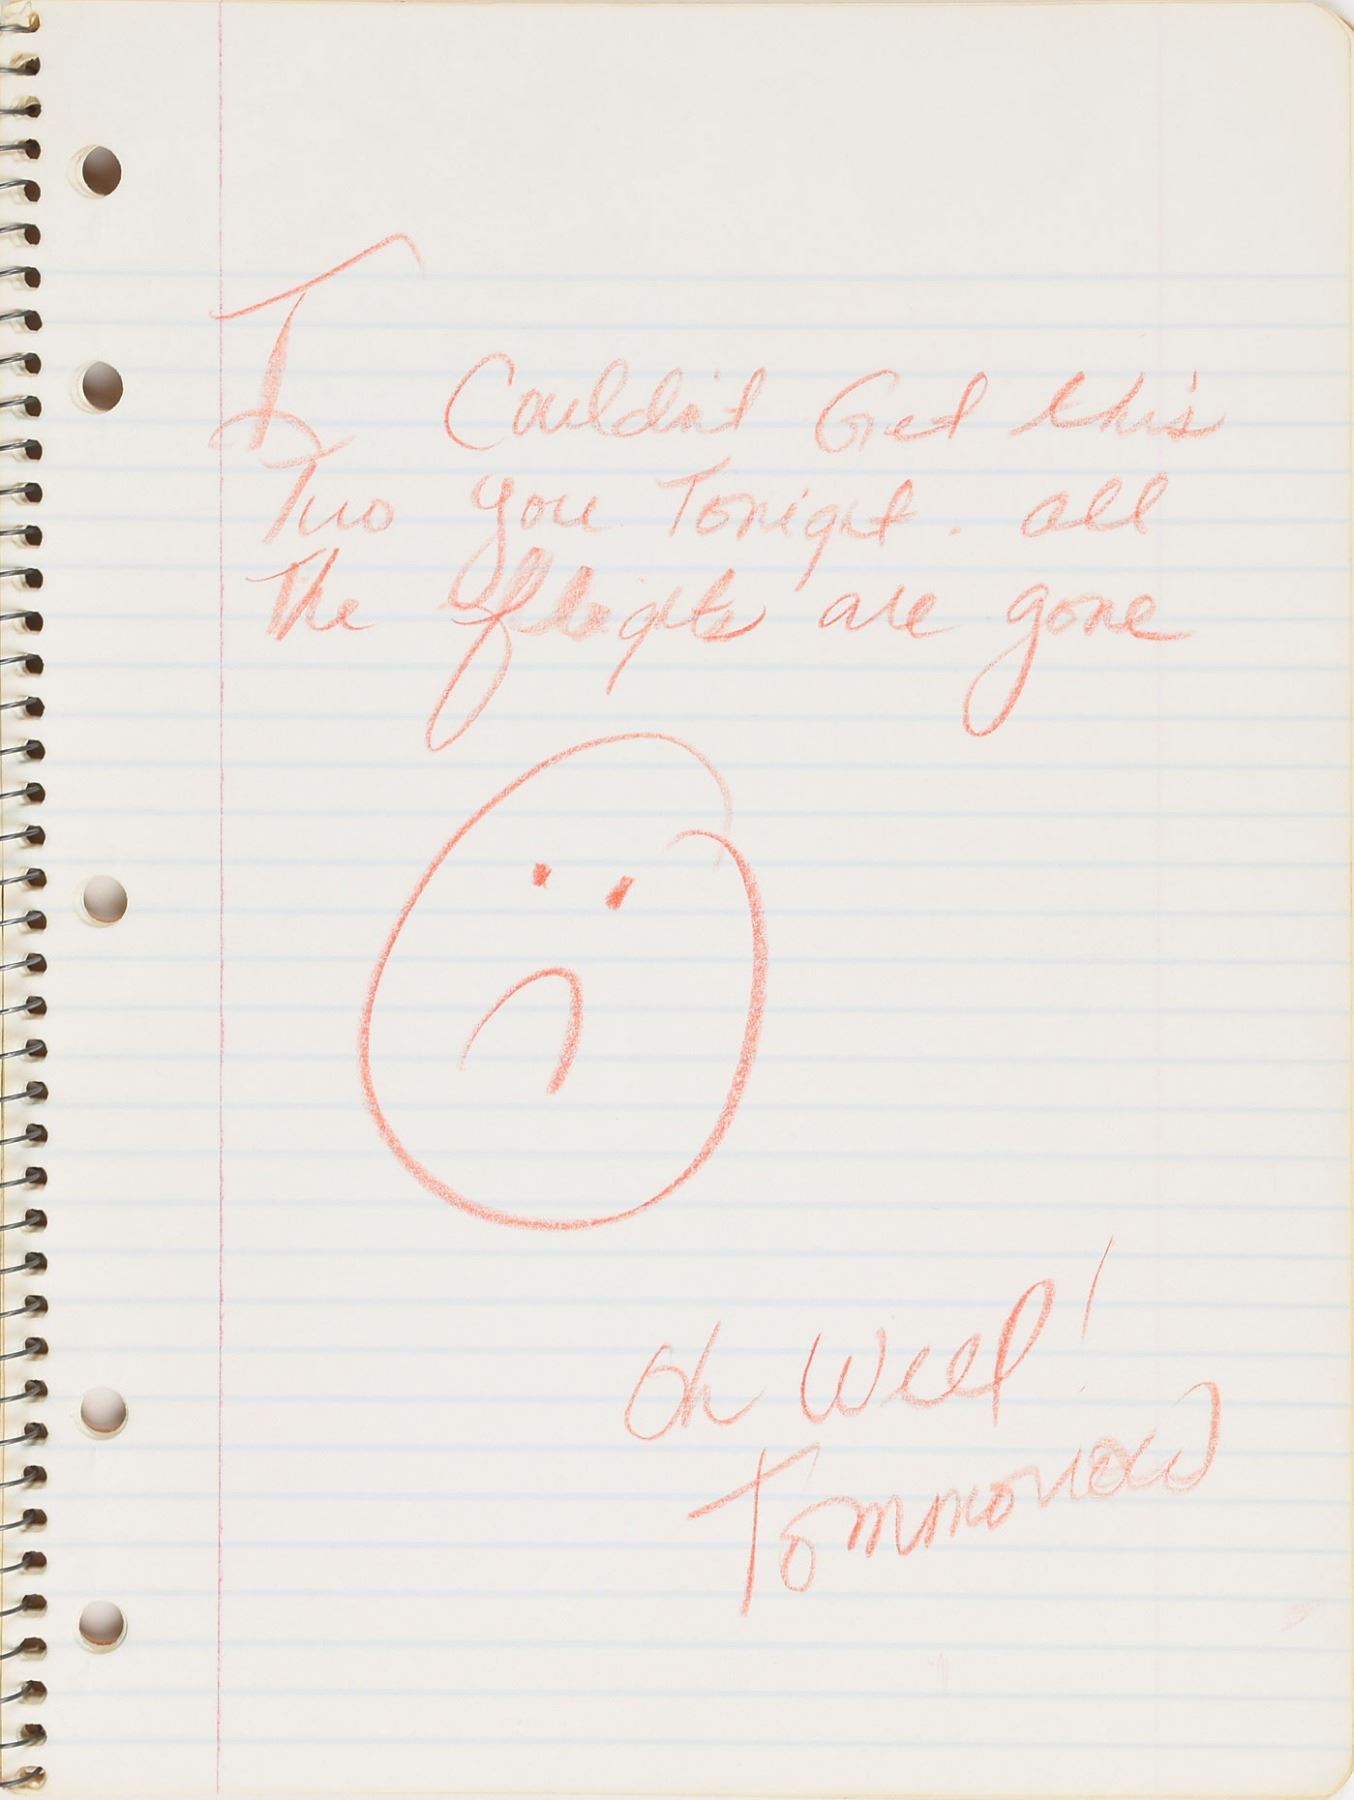 I Couldn't Get this
Two you Tonight. all
The flights are gone
Oh Well!
Tommorrow